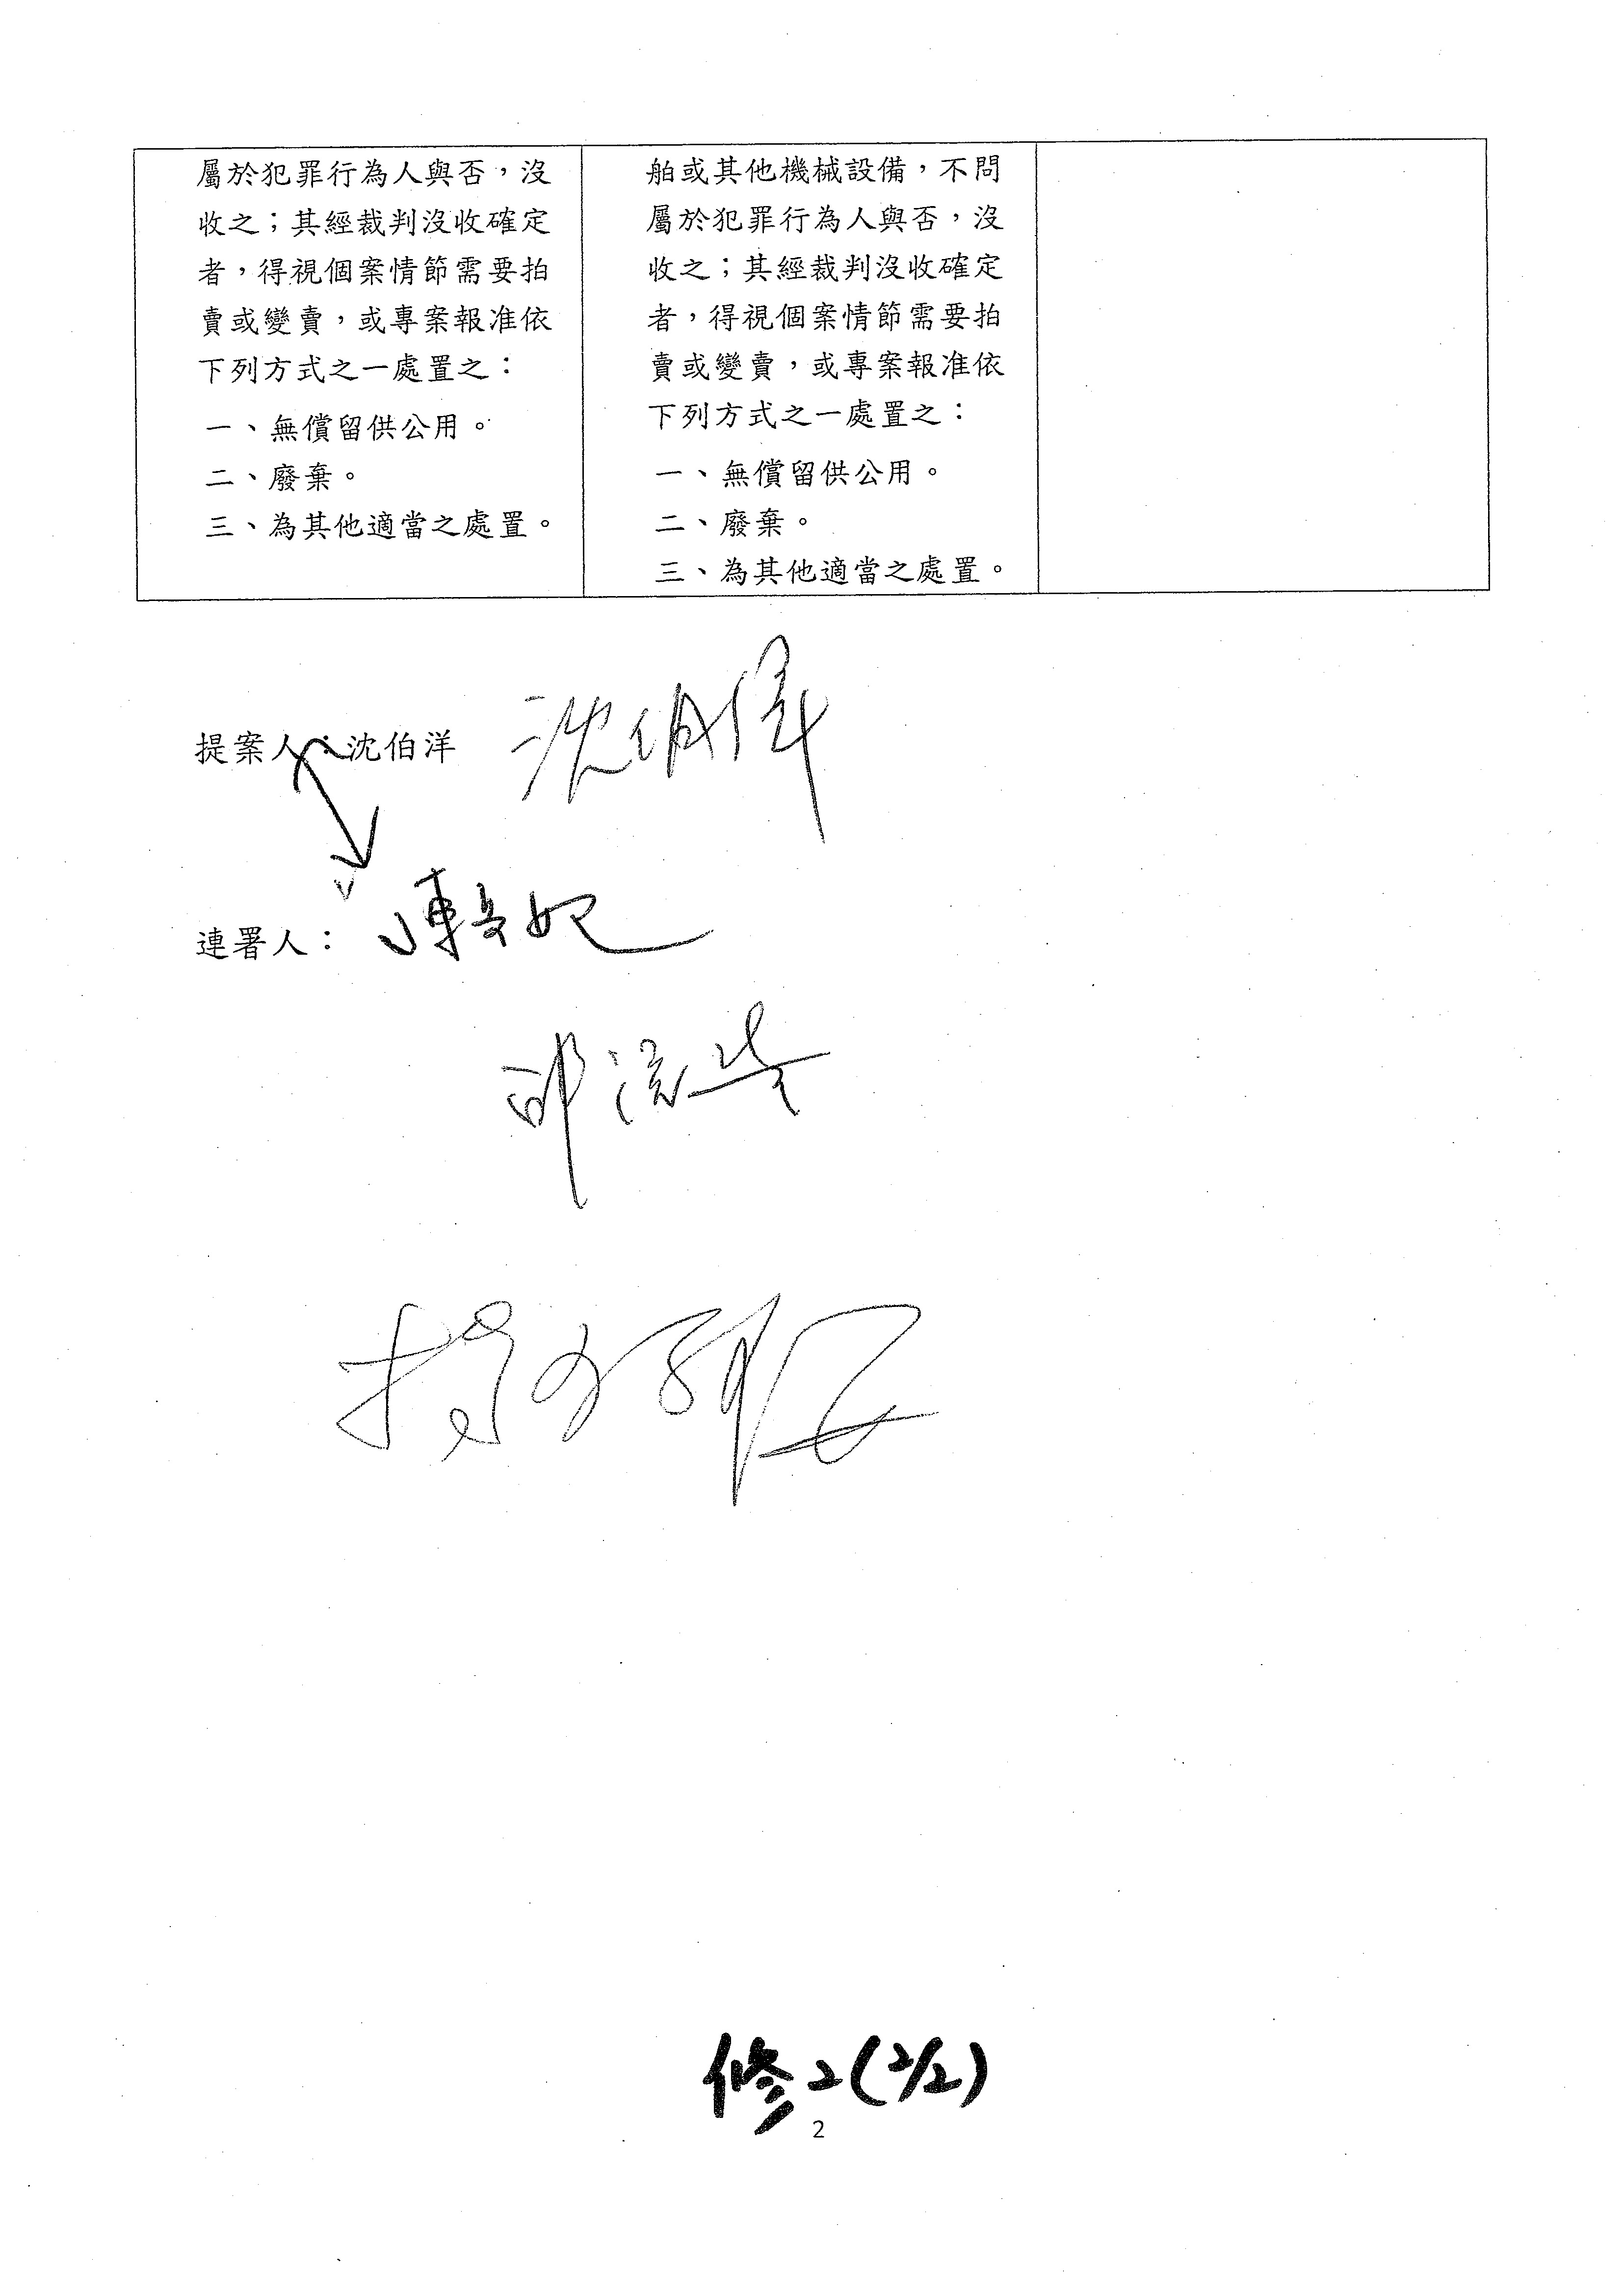 屬於犯罪行為人與否，沒
收之；其經裁判沒收確定
者，得視個案情節需要拍
賣或變賣，或專案報准依
下列方式之一處置之：
一、無償留供公用。
二、廢棄。
三、為其他適當之處置。
舶或其他機械設備，不問
屬於犯罪行為人與否，沒
收之；其經裁判沒收確定
者，得視個案情節需要拍
賣或變賣，或專案報准依
下列方式之一處置之：
一、無償留供公用。
二、廢棄。
三、為其他適當之處置。
提案人：沈伯洋 沈伯洋
連署人：
修2(2/2)
2